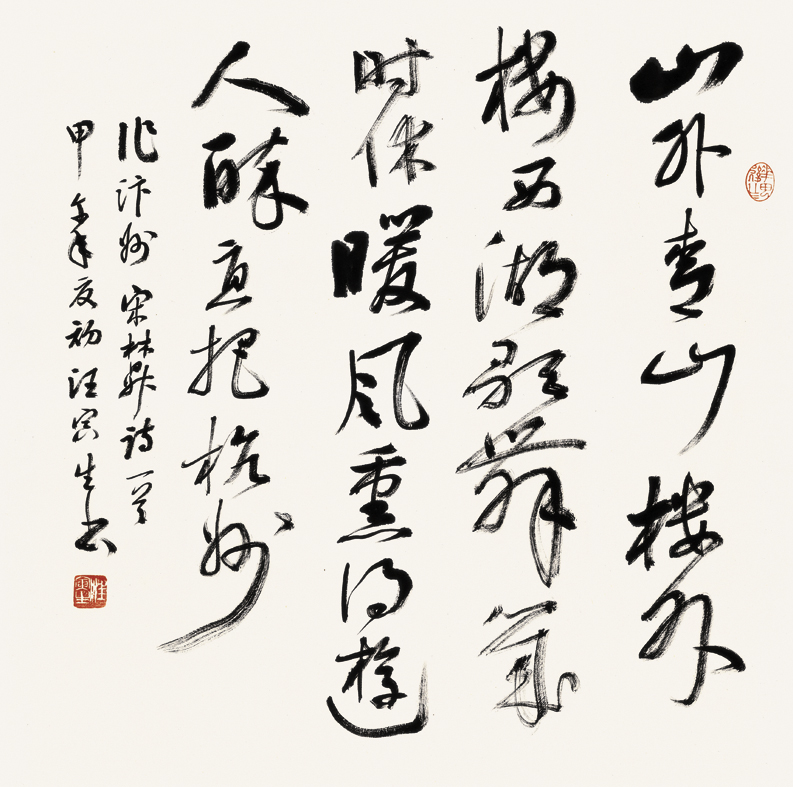 山外青山楼外
楼西湖歌舞幾
时休暖风熏得遊
人醉直把杭州
作汴州 宋林升诗一首
甲午年夏初汪寅生书